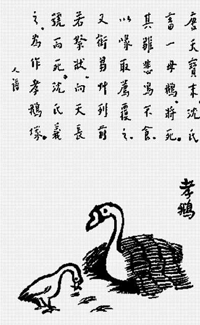 唐天寶末,沈氏
畜一母鵝,將死,
其雛悲鳴不食,
以喙取薦覆之,
又銜芻艸列前
若祭狀,向天長
號而死,沈氏義
之,為作孝鵝塚。
人譜
孝鵝